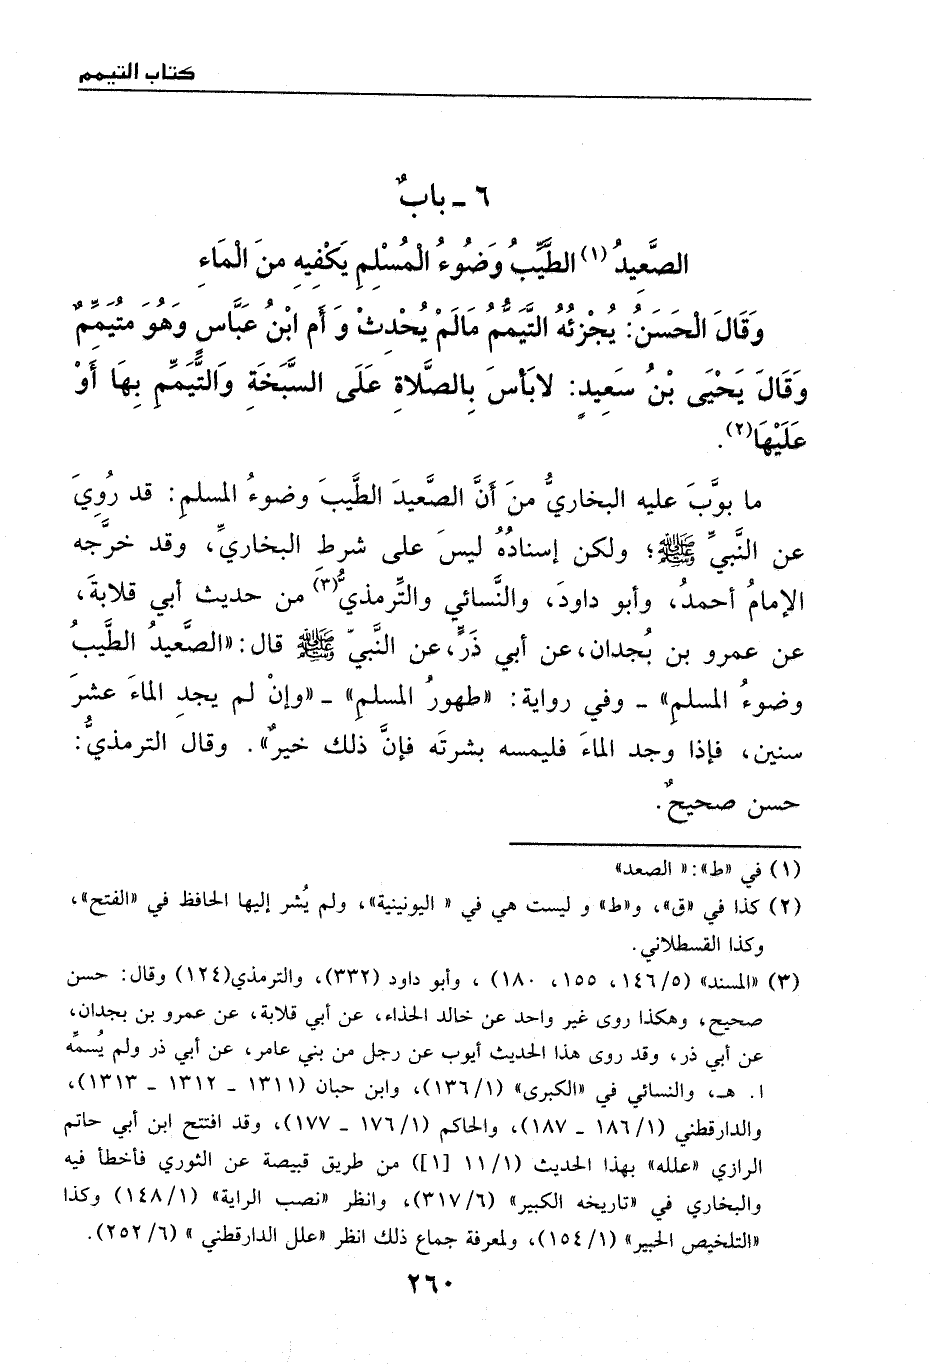 كتاب التيمم
٦ ـ بابٌ
الصَّعِيدُ(١) الطَّيِّبُ وَضُوءُ الْمُسْلِمِ يَكْفِيهِ مِنَ الْمَاءِ
وَقَالَ الْحَسَنُ: يُجْزِئُهُ التَّيَمُّمُ مَالَمْ يُحْدِثْ وَ أم ابْنُ عَبَّاسٍ وَهُوَ مُتَيَمِّمٌ
وَقَالَ يَحْيَى بْنُ سَعِيدٍ: لابَأْسَ بِالصَّلاةِ عَلَى السَّبَخَةِ وَالتَّيَمُّمِ بِهَا أَوْ
عَلَيْهَا(٢).
ما بوَّبَ عليه البخاريُّ منَ أنَّ الصَّعيدَ الطَّيبَ وضوءُ المسلمِ: قد رُويَ
عن النَّبيِّ ﷺ؛ ولكن إسنادُهُ ليسَ على شرطِ البخاريِّ، وقد خرَّجه
الإمامُ أحمدُ، وأبو داودَ، والنَّسائي والتِّرمذيُّ(٣) من حديث أبي قلابةَ،
عن عمرو بن بُجدان،عن أبي ذَرٍّ،عن النَّبيّ ﷺ قال:«الصَّعيدُ الطَّيبُ
وضوءُ المسلمِ» ـ وفي رواية: «طهورُ المسلمِ» ـ «وإنْ لم يجدِ الماءَ عشرَ
سنين، فإذا وجد الماءَ فليمسه بشرتَه فإنَّ ذلك خيرٌ». وقال الترمذيُّ:
حسن صحيحٌ.
(١) في «ط»:« الصعد»
(٢) كذا في «ق»، و«ط» و ليست هي في « اليونينية»، ولم يُشر إليها الحافظ في «الفتح»،
وكذا القسطلاني.
(٣) «المسند» (٥/ ١٤٦، ١٥٥، ١٨٠) ، وأبو داود (٣٣٢)، والترمذي(١٢٤) وقال: حسن
صحيح، وهكذا روى غير واحد عن خالد الحذاء، عن أبي قلابة، عن عمرو بن بجدان،
عن أبي ذر، وقد روى هذا الحديث أيوب عن رجل من بني عامر، عن أبي ذر ولم يُسمِّه
ا. هـ، والنسائي في «الكبرى» (١/ ١٣٦)، وابن حبان (١٣١١ ـ ١٣١٢ ـ ١٣١٣)،
والدارقطني (١/ ١٨٦ ـ ١٨٧)، والحاكم (١/ ١٧٦ ـ ١٧٧)، وقد افتتح ابن أبي حاتم
الرازي «علله» بهذا الحديث (١/ ١١ [١]) من طريق قبيصة عن الثوري فأخطأ فيه
والبخاري في «تاريخه الكبير» (٦/ ٣١٧)، وانظر «نصب الراية» (١/ ١٤٨) وكذا
«التلخيص الحبير» (١/ ١٥٤)، ولمعرفة جماع ذلك انظر «علل الدارقطني » (٦/ ٢٥٢).
٢٦٠